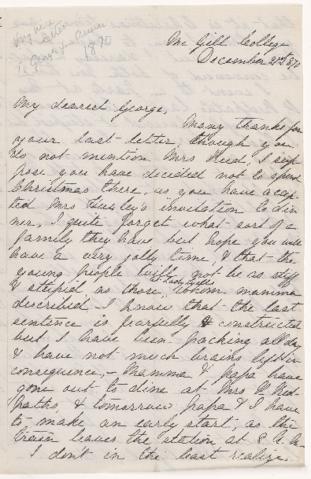 George & Anna
1870
McGill College
December 21st 1870
My dearest George,
Many thanks for
your last letter, though you
do not mention Mrs Hurd, I sup
pose you have decided not to spend
Christmas there, as you have accep
ted Mrs Huxley's invitation to din
ner, I quite forget what sort of a
family they have but hope you will
have a very jolly time, & that the
young people will not be as stiff
& stupid as those, whom mamma
described. I know that the last
sentence is fearfully constructed
but I have been packing all day
& have not much brains left in
consequence, - Mamma & papa have
gone out to dine at Mrs Red-
paths, & tomorrow papa & I have
to make an early start; as the
train leaves the station at 8
I don't in the least realize